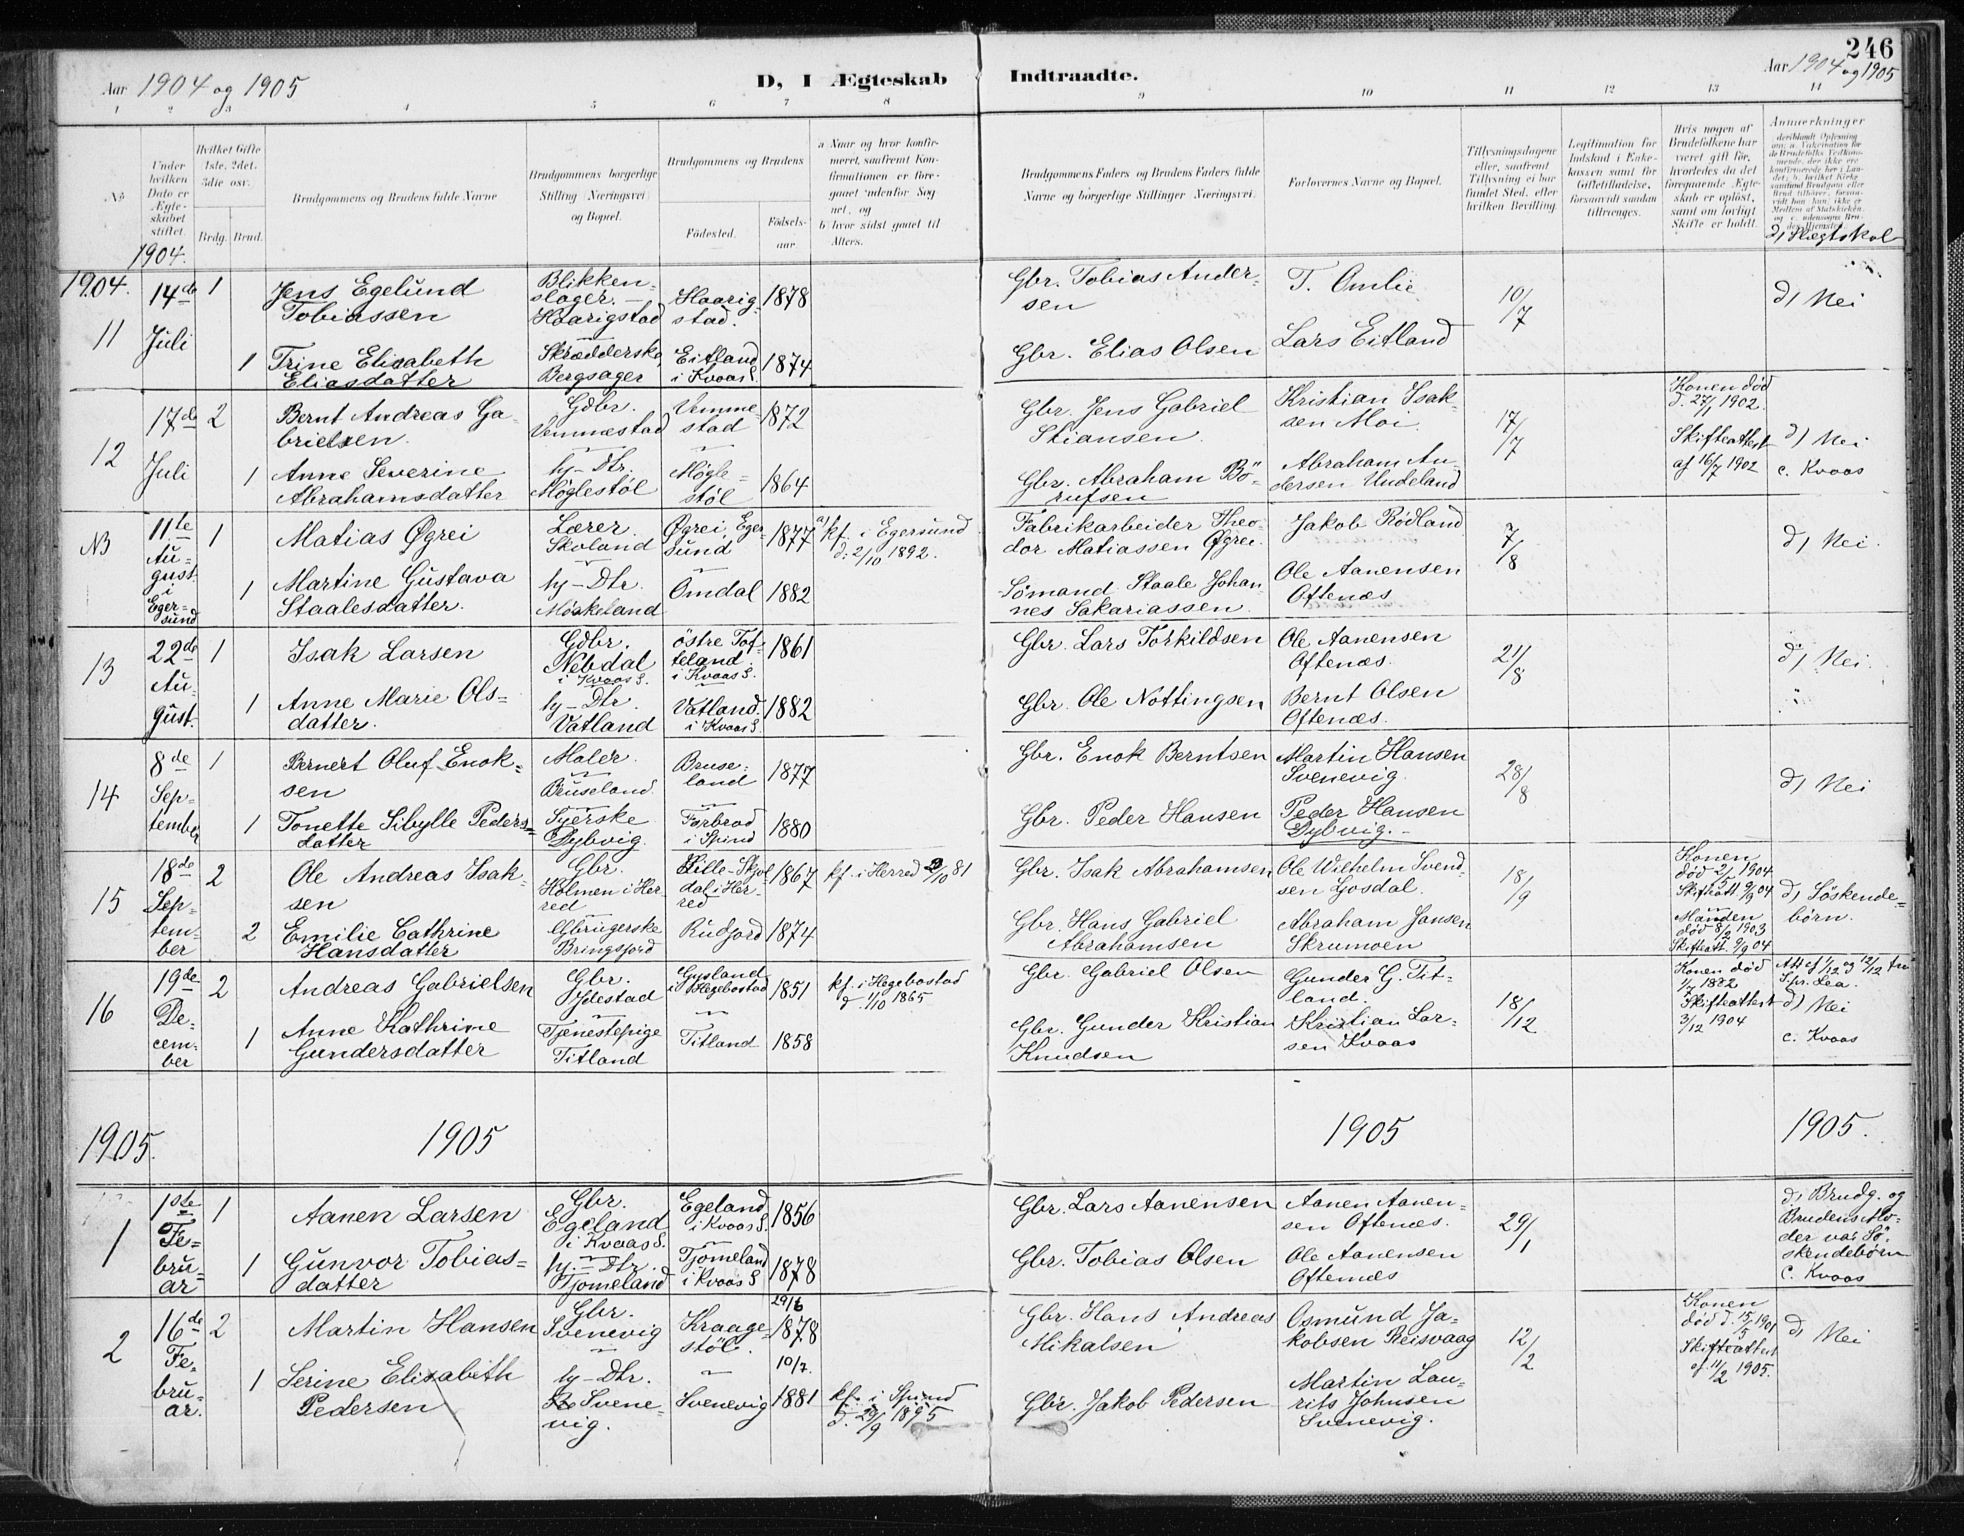 246
Aar 1904 og 1905
D, I Ægteskab Indtraadte.
Aar 1904 og 1905
1 2 3 4 5 6 7 8 9 10 11 12 13 14
No
Under hvilken Dato er Ægteskabet stiftet.
Hvilket Gifte 1ste, 2det, 3die osv.
Brdg. Brud.
Brudgommens og Brudens fulde Navne
Brudgommens borgerlige Stilling (Næringsvei) og Bopæl.
Brudgommens og Brudens
Fødested.
Fødselsaar.
a Naar og hvor konfirmeret, saafremt Konfirmationen er foregaaet udenfor Sognet, og
b hvor sidst gaaet til Alters.
Brudgommens Faders og Brudens Faders fulde Navne og borgerlige Stillinger (Næringsvei).
Forlovernes Navne og Bopæl.
Tillysningsdagene eller, saafremt Tillysning ei har fundet Sted, efter hvilken Bevilling.
Legitimation for Indskud i Enkekassen samt for Giftetilladelse, forsaavidt saadan tiltrænges.
Hvis nogen af Brudefolkene har været gift før, hvorledes da det foregaaende Ægteskab er opløst, samt om lovligt Skifte er holdt.
Anmerkninger
d) Slægtskab
1904.
1904.
11
14de Juli
1
Jens Egelund Tobiassen
Blikkenslager. Haarigstad
Haarigstad.
1878
Gbr. Tobias Andersen
T. Omlie
10/7
d) Nei
1
Trine Elisabeth Eliasdatter
Skrædderske, Bergsager
Eitland i Kvaas S.
1874
Gbr. Elias Olsen
Lars Eitland
12
17de Juli
2
Bernt Andreas Gabrielsen.
Gdbr. Vemmestad
Vemmestad
1872
Gbr. Jens Gabriel Stiansen.
Kristian Isaksen Moi.
17/7
Konen død d. 27/1 1902.
Skifteattest af 16/7 1902
d) Nei
c. Kvaas
1
Anne Severine Abrahamsdatter
hj-Dtr. Møglestøl
Møglestøl
1864
Gbr. Abraham Börufsen
Abraham Andersen Undeland
NB
11te August i Egersund
1
Matias Øgrei
Lærer. Skoland
Øgrei, Egersund
1877
a) kf. i Egersund d. 2/10 1892.
Fabrikarbeider Theodor Matiassen Øgrei.
Jakob Rødland
7/8
d) Nei.
1
Martine Gustava Staalesdatter.
hj-Dtr. Møskeland
Omdal
1882
Sömand Staale Johannes Sakariassen.
Ole Aanensen Oftenæs
13
22de August.
1
Isak Larsen
Gdbr. Nebdal i Kvaas S.
östre Tofteland. i Kvaas S.
1861
Gbr. Lars Torkildsen
Ole Aanensen Oftenæs.
21/8
d) Nei.
1
Anne Marie Olsdatter.
hj-Dtr. Vatland
Vatland. i Kvaas S.
1882
Gbr. Ole Nottingsen
Bernt Olsen Oftenæs.
14
8de September
1
Bernert Oluf Enoksen
Maler. Bruseland.
Bruseland
1877
Gbr. Enok Berntsen
Martin Hansen Svenevig.
28/8
d) Nei
1
Tonette Sibylle Pedersdatter
Syerske Dybvig.
Førbrod i Spind
1880
Gbr. Peder Hansen
Peder Hansen Dybvig.
15
18de September
2
Ole Andreas Isaksen
Gbr. Holmen i Herred
Lille-Skjoldal i Herred
1867
kf. i Herred 2/10 81
Gbr. Isak Abrahamsen
Ole Wilhelm Svendsen Gosdal.
18/9
Konen død 2/5 1904
Skifteatt 9/9 04
d) Söskendebørn.
2
Emilie Cathrine Hansdatter
Gbrugerske Bringsjord
Rudjord
1874
Gbr. Hans Gabriel Abrahamsen
Abraham Jansen Skrumoen
Manden død 8/2 1903
Skifteatt. 9/9 04
16
19de December
2
Andreas Gabrielsen
Gbr. Ydestad
Gysland i Hegebostad
1851
kf. i Hegebostad d 1/10 1865
Gbr. Gabriel Olsen
Gunder G. Titland.
18/12
Konen død 1/7 1882
Skifteattest 3/12 1904
Att af 1/12 og 12/12 fra Spr. Lea.
d) Nei
c. Kvaas
1
Anne Kathrine Gundersdatter
Tjenestepige Titland
Titland
1858
Gbr. Gunder Kristian Knudsen
Kristian Larsen Kvaas
1905. 1905 1905 1905.
1
1ste Februar
1
Aanen Larsen
Gbr. Egeland i Kvaas S.
Egeland i Kvaas S.
1856
Gbr. Lars Aanensen
Aanen Aanensen Oftenæs.
29/1
d) Brudg. og Brudens Moder var Söskendebørn
c. Kvaas
1
Gunvor Tobiasdatter
hj-Dtr. Tjomeland
Tjomeland i Kvaas S
1878
Gbr. Tobias Olsen
Ole Aanensen Oftenæs
2
16de Februar.
2
Martin Hansen
Gbr. Svenevig
Kraagestöl.
29/6 1878
Gbr. Hans Andreas Mikalsen
Osmund Jakobsen Reisvaag
12/2
Konen død d. 15/5 1901
Skifteattest af 11/2 1905.
d) Nei
1
Serine Elisabeth Pedersen
hj-Dtr. Svenevig.
Svenevig
10/7. 1881
kf. i Spind d. 29/9 1895
Gbr. Jakob Pedersen
Martin Laurits Johnsen Svenevig.